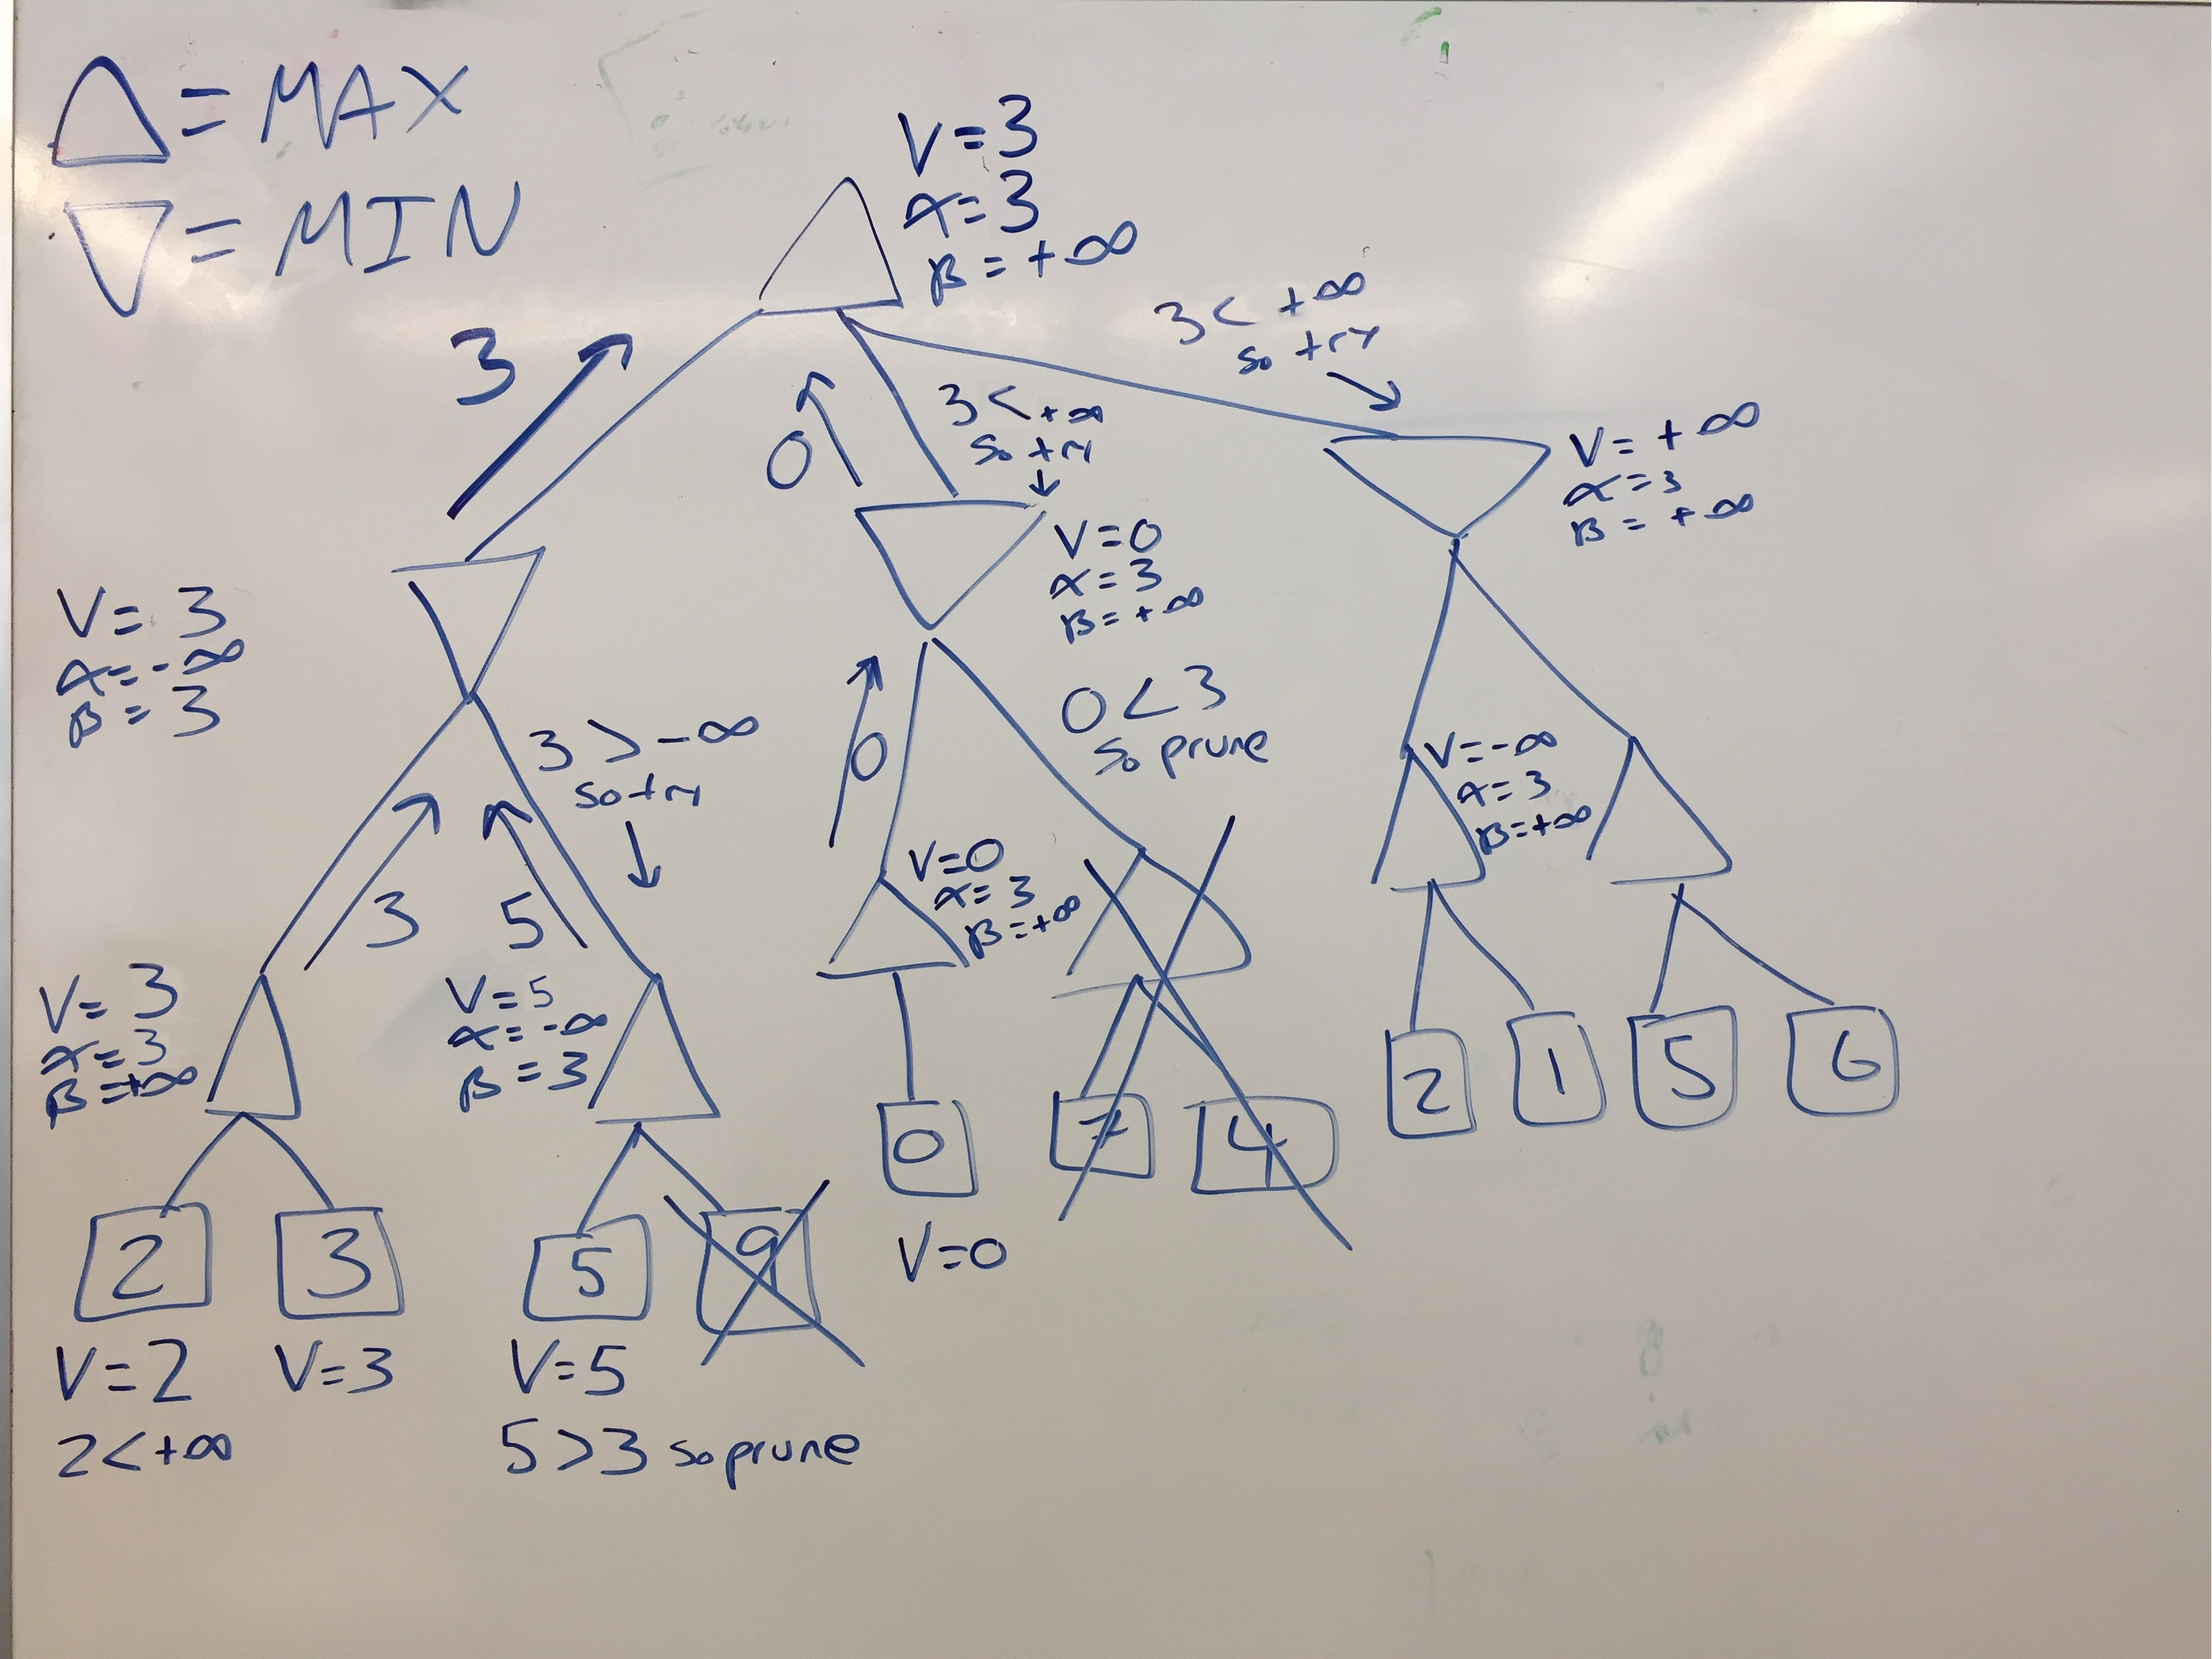 △ = MAX
▽ = MIN
V = 3
α = 3
β = +∞
3
3 < +∞
so try
0
3 < +∞
so try
V = +∞
α = 3
β = +∞
V = 0
α = 3
β = +∞
V = 3
α = -∞
β = 3
3 > -∞
so try
0
0 < 3
so prune
V = -∞
α = 3
β = +∞
3
5
V = 0
α = 3
β = +∞
V = 3
α = 3
β = +∞
V = 5
α = -∞
β = 3
2 1 5 6
0 7 4
2 3 5 9
V = 0
V = 2 V = 3 V = 5
2 < +∞
5 > 3 so prune